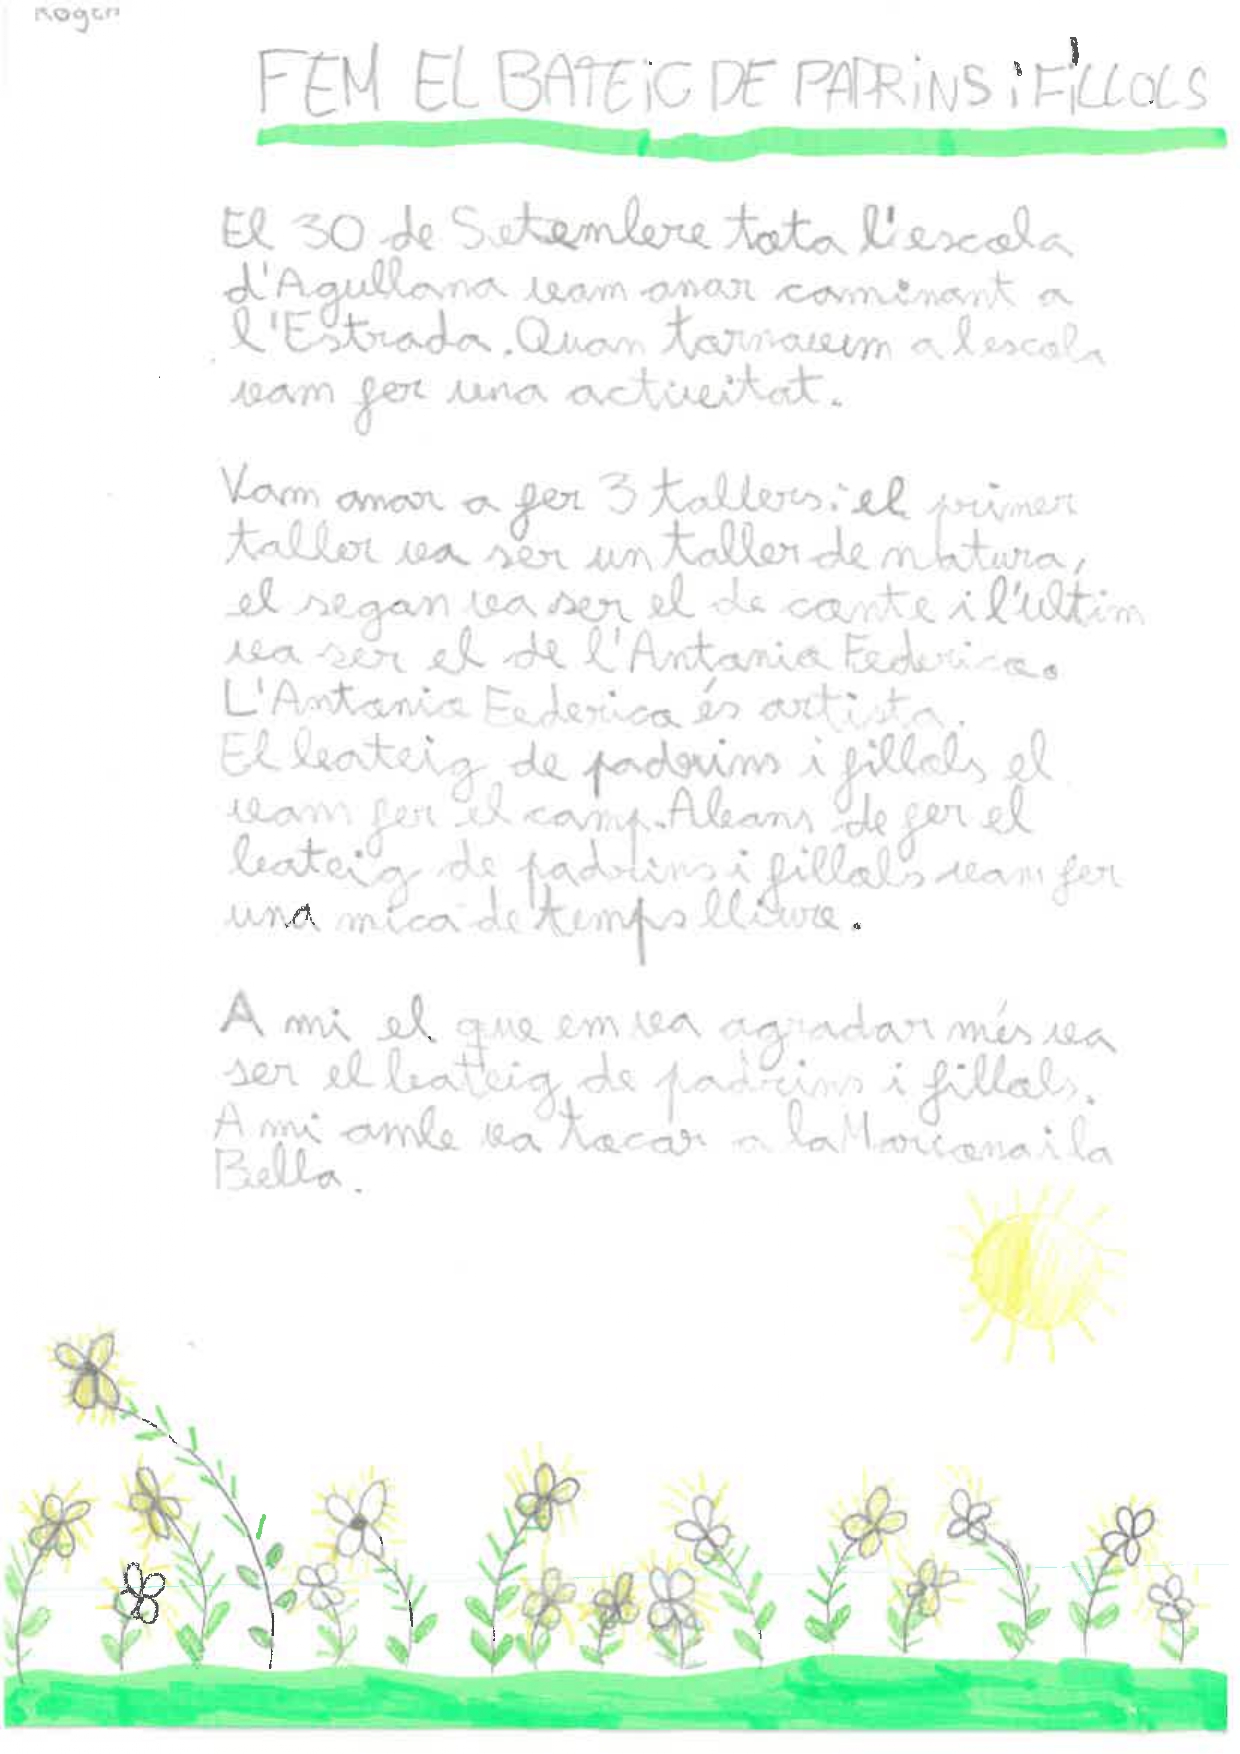 Roger
FEM EL BATEIG DE PADRINS i FILLOLS
El 30 de Setembre tota l'escola
d'Agullana vam anar caminant a
l'Estrada. Quan tornavem a lescola
vam fer una activitat.
Vam anar a fer 3 tallers: el primer
taller va ser un taller de natura,
el segon va ser el de conte i l'ultim
va ser el de l'Antonia Federica.
L'Antonia Federica és artista.
El bateig de padrins i fillols el
vam fer el camp. Abans de fer el
bateig de padrins i fillols vam fer
una mica de temps lliure.
A mi el que em va agradar més va
ser el bateig de padrins i fillols.
A mi amb va tocar a la Mariona i la
Bella.